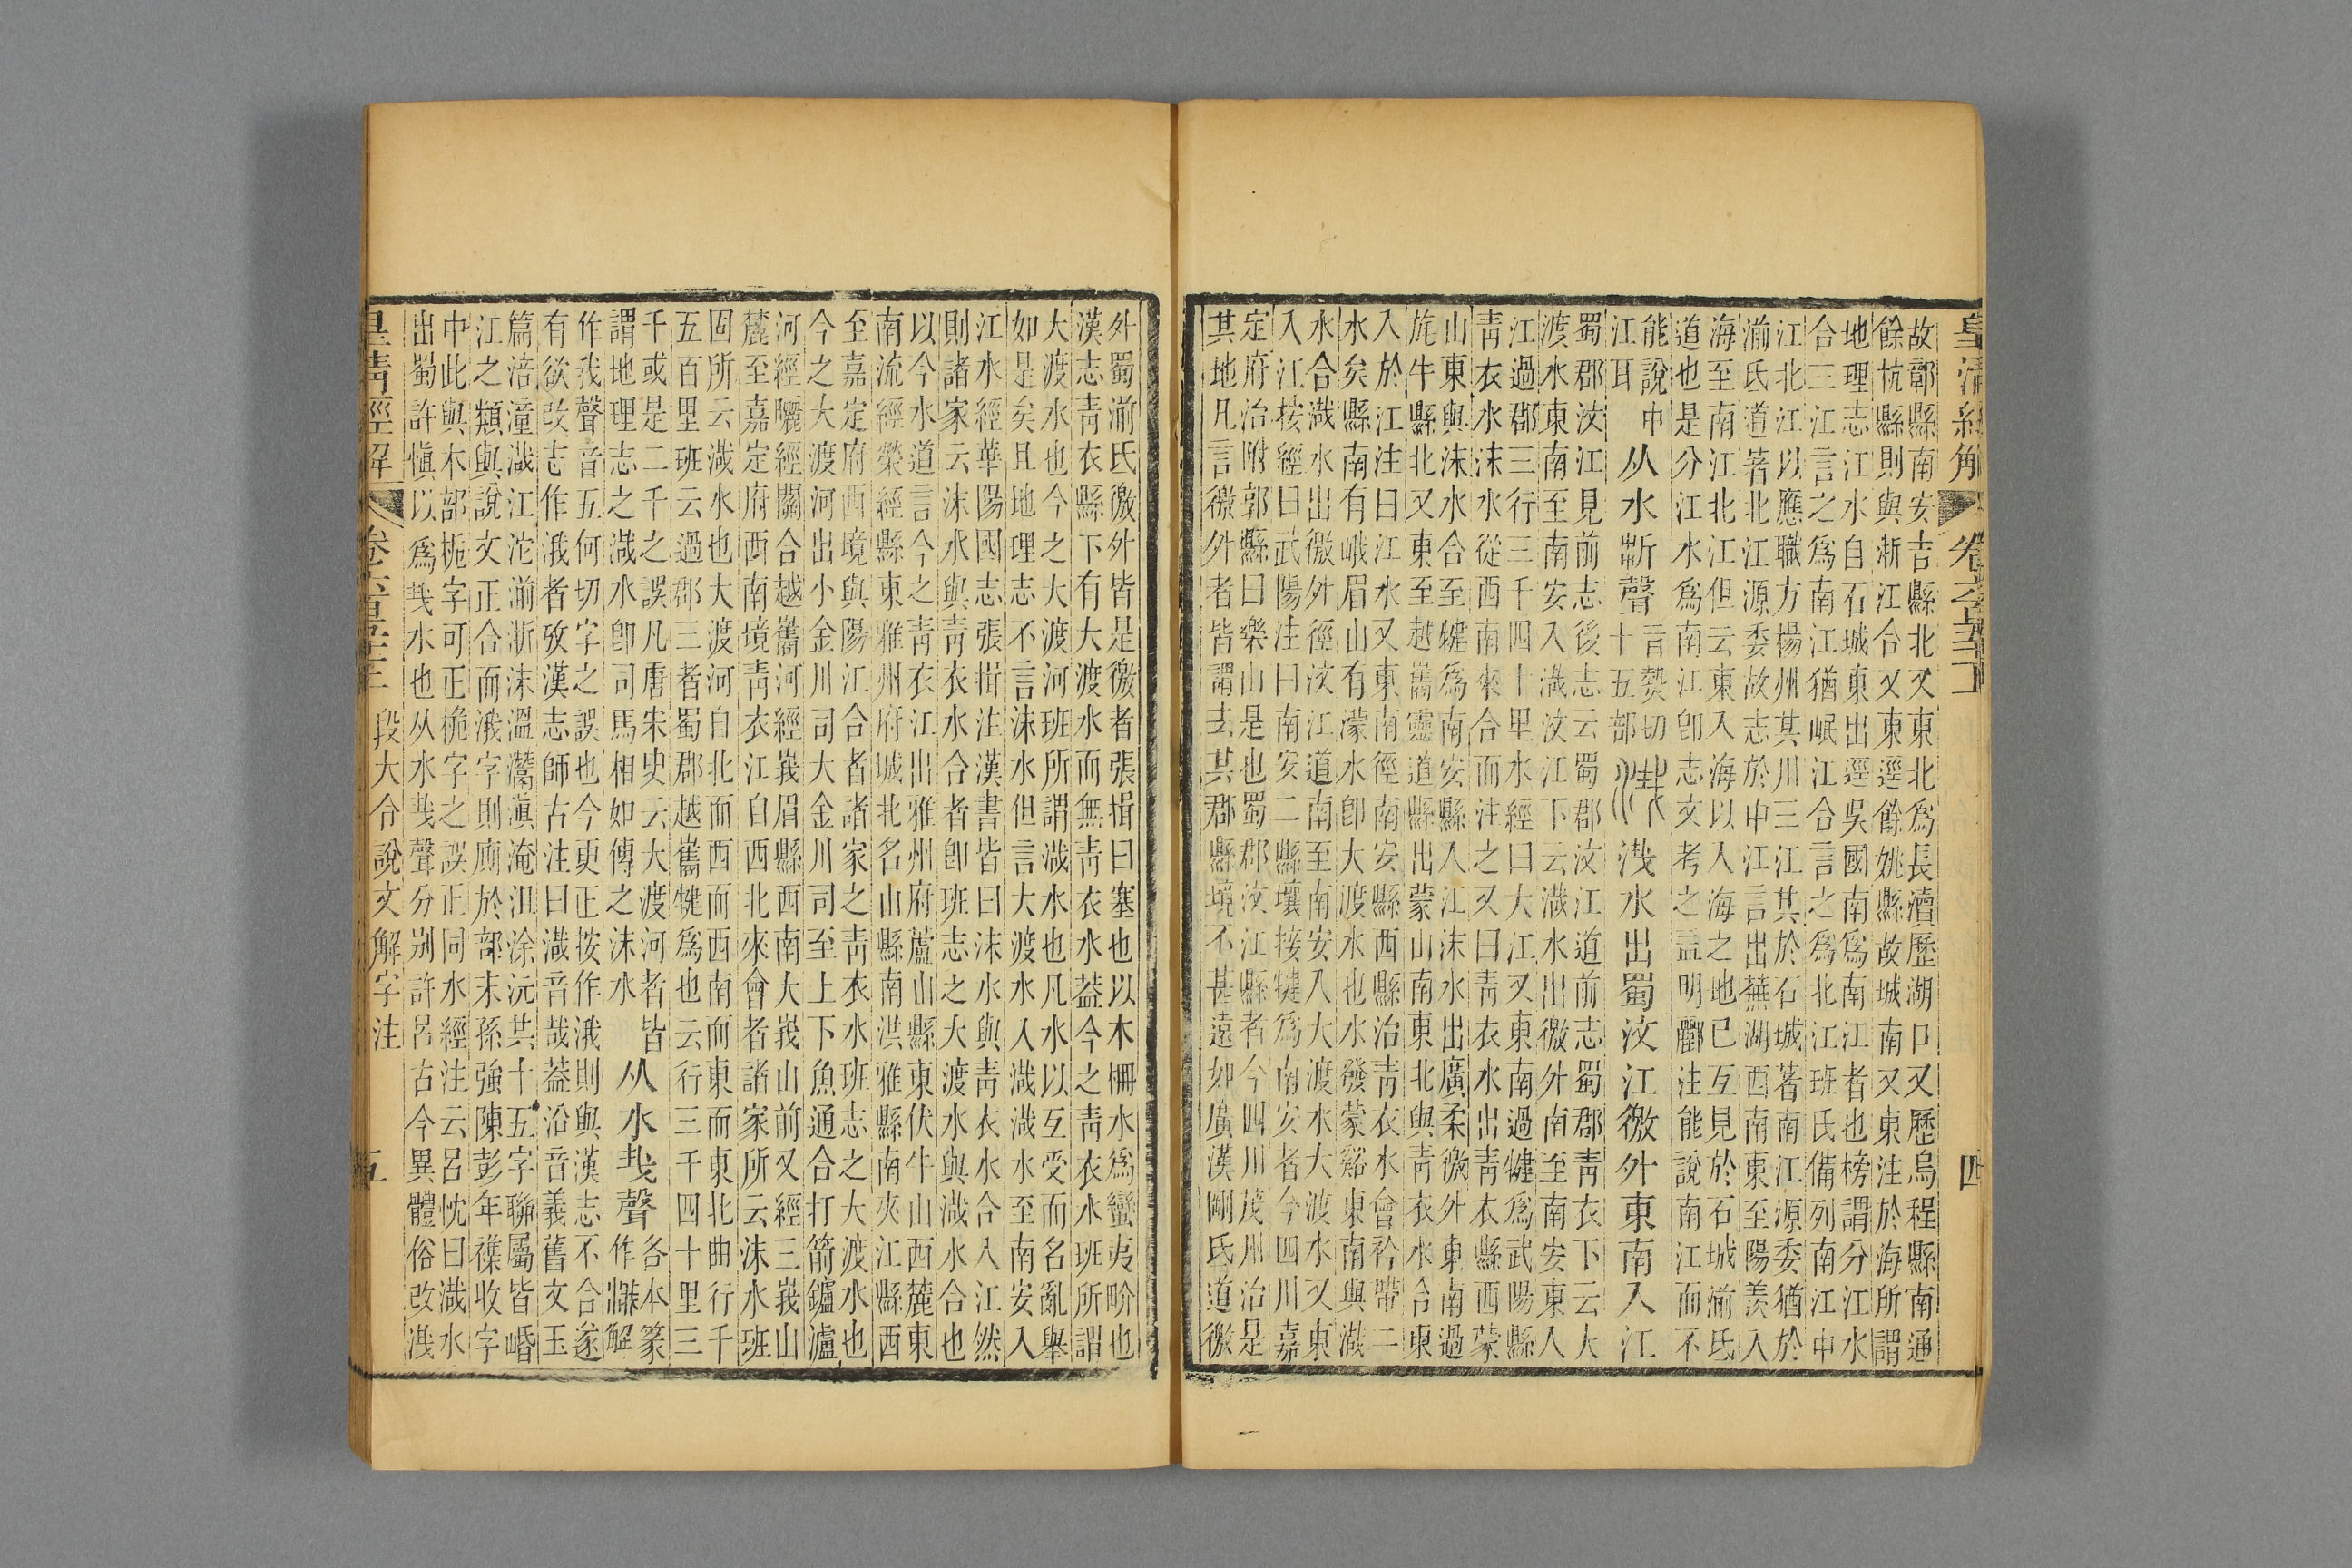 皇清經解 卷六百五十一 四
故鄣縣南安吉縣北又東北爲長瀆歷湖口又歷烏程縣南通
餘杭縣則與浙江合又東逕餘姚縣故城南又東注於海所謂
地理志江水自石城東出逕吳國南爲南江者也榜謂分江水
合三江言之爲南江猶岷江合言之爲北江班氏備列南江中
江北江以應職方楊州其川三江其於石城著南江源委猶於
湔氏道著北江源委故志於中江言出蕪湖西南東至陽羨入
海至南江北江但云東入海以入海之地已互見於石城湔氏
道也是分江水爲南江卽志文考之盖明酈注能說南江而不
能說中
江耳
从水㪿聲
切
十五部
浅水出蜀汶江徼外東南入江
蜀郡汶江見前志後志云蜀郡汶江道前志蜀郡靑衣下云大
渡水東南至南安入渽汶江下云渽水出徼外南至南安東入
江過郡三行三千四十里水經曰大江又東南過犍爲武陽縣
靑衣水沫水從西南來合而注之又曰靑衣水出靑衣縣西蒙
山東與沫水合至犍爲南安縣入江沫水出廣柔徼外東南過
旄牛縣北又東至越巂靈道縣出蒙山南東北與靑衣水合東
入於江注曰江水又東南徑南安縣西縣治靑衣水會衿帶二
水矣縣南有峨眉山有濛水卽大渡水也水發蒙谿東南與渽
水合渽水出徼外徑汶江道南至南安入大渡水大渡水又東
入江按經曰武陽注曰南安二縣壤接犍爲南安者今四川嘉
定府治附郭縣曰樂山是也蜀郡汶江縣者今四川茂州治是
其地凡言徼外者皆謂去其郡縣境不甚遠如廣漢剛氏道徼
外蜀湔氏徼外皆是徼者張揖曰塞也以木柵水爲蠻夷畍也
漢志靑衣縣下有大渡水而無靑衣水葢今之靑衣水班所謂
大渡水也今之大渡河班所謂渽水也凡水以互受而名亂舉
如是矣且地理志不言沫水但言大渡水入渽渽水至南安入
江水經華陽國志張揖注漢書皆曰沫水與靑衣水合入江然
則諸家云沫水與靑衣水合者卽班志之大渡水與渽水合也
以今水道言今之靑衣江出雅州府蘆山縣東伏牛山西麓東
南流經榮經縣東雅州府城北名山縣南洪雅縣南夾江縣西
至嘉定府西境與陽江合者諸家之靑衣水班志之大渡水也
今之大渡河出小金川司大金川司至上下魚通合打箭鑪瀘
河經曬經關合越巂河經峩眉縣西南大峩山前又經三峩山
麓至嘉定府西南境靑衣江自西北來會者諸家所云沫水班
固所云渽水也大渡河自北而西而西南而東而東北曲行千
五百里班云過郡三者蜀郡越巂犍爲也云行三千四十里三
千或是二千之誤凡唐朱史云大渡河者皆
謂地理志之渽水卽司馬相如傳之沬水
从水𢦔聲
各本篆
作𣽎解
作我聲音五何切字之誤也今更正按作涐則與漢志不合遂
有欲改志作涐者攷漢志師古注曰渽音哉葢沿音義舊文玉
篇涪潼渽江沱湔浙沫溫灊滇淹沮涂沅共十五字聯屬皆崏
江之類與說文正合而涐字則廁於部末孫強陳彭年襍收字
中此與木部桅字可正桅字之誤正同水經注云呂忱曰渽水
出蜀許愼以爲𢦔水也从水𢦔聲分別許呂古今異體俗改浅
皇清經解 卷六百五十一 段大令說文解字注 五